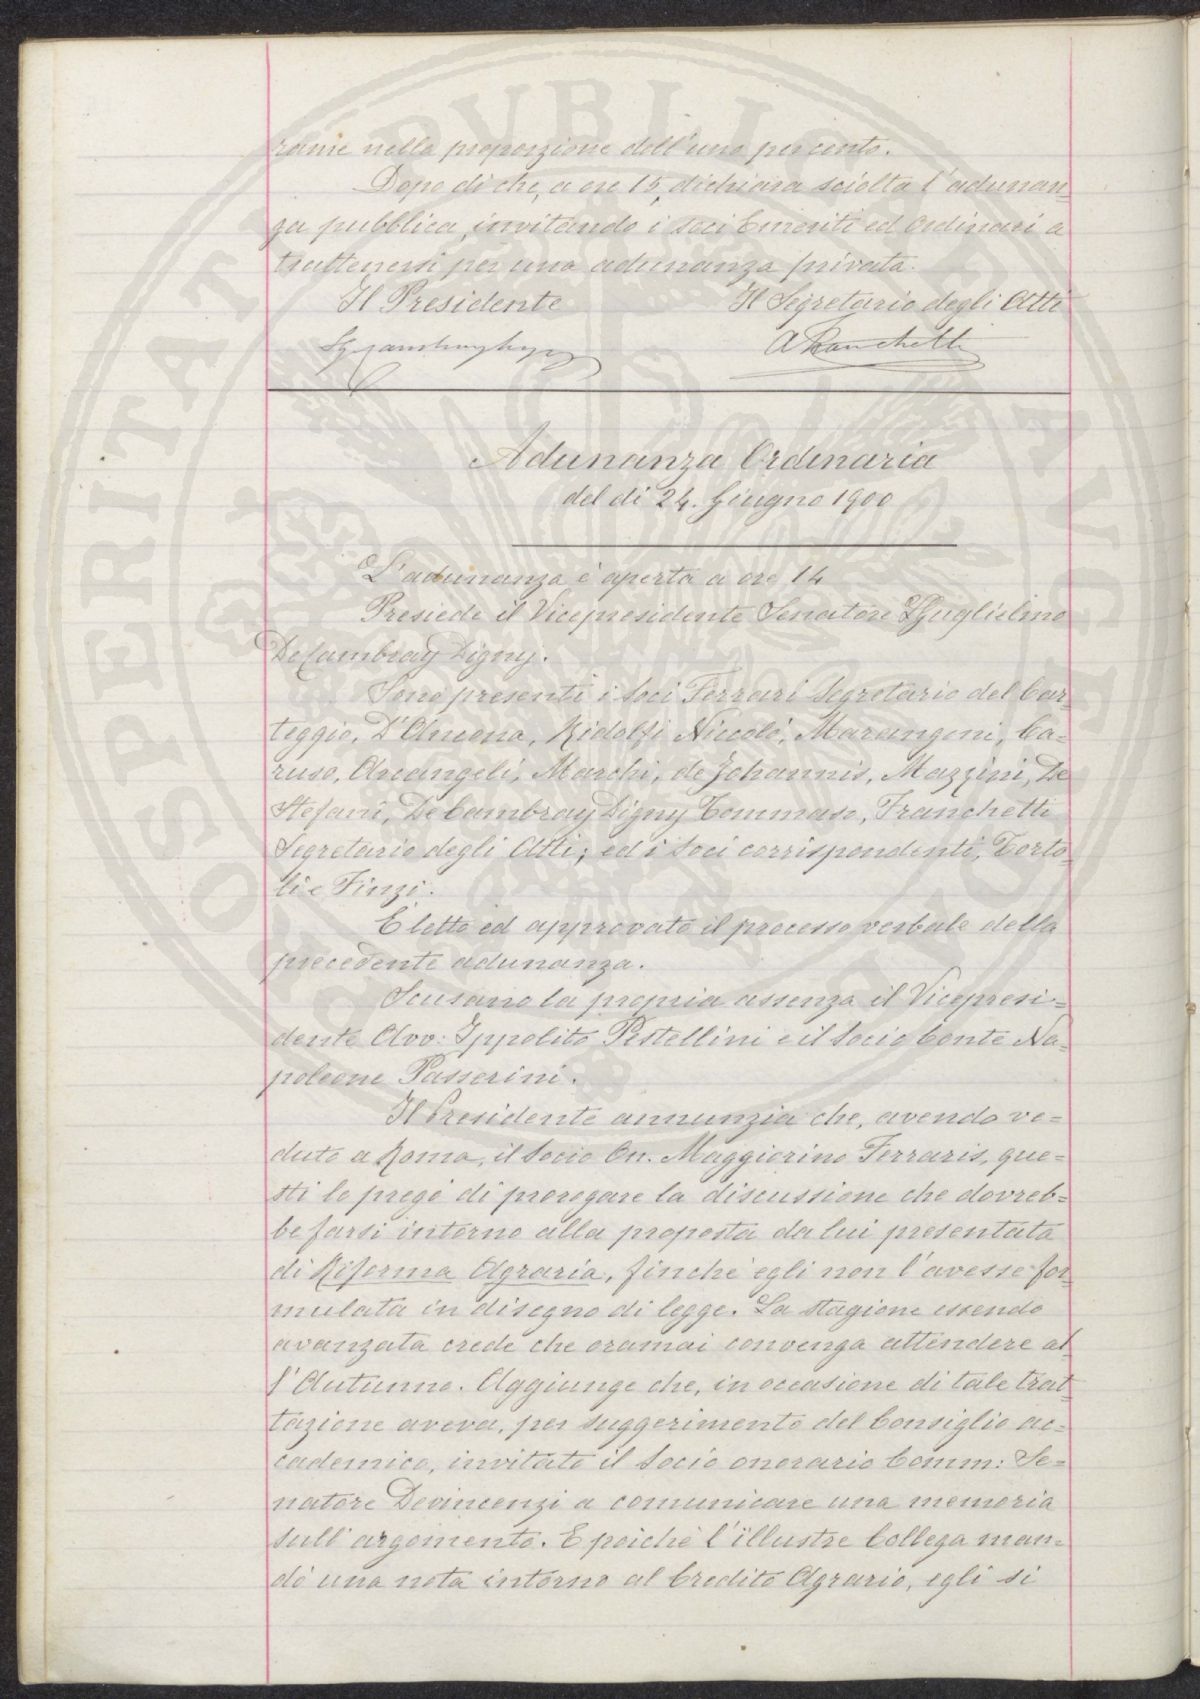 rame nella proporzione dell'uno per cento.
Dopo di che, a ore 15, dichiara sciolta l'adunan-
za pubblica, invitando i Soci Emeriti ed Ordinari a
trattenersi per una adunanza privata.
Il Presidente Il Segretario degli Atti
A Franchetti
Adunanza Ordinaria
del dì 24. Giugno 1900
L'adunanza è aperta a ore 14
Presiede il Vicepresidente Senatore Guglielmo
De Cambray Digny.
Sono presenti i Soci Ferrari Segretario del Car-
teggio, D'Ancona, Ridolfi Niccolò, Marangoni, Ca-
ruso, Arcangeli, Marchi, de Johannis, Mazzini, De
Stefani, De Cambray Digny Tommaso, Franchetti
Segretario degli Atti; ed i Soci corrispondenti, Torto-
li e Finzi.
È letto ed approvato il processo verbale della
precedente adunanza.
Scusano la propria assenza il Vicepresi=
dente Avv: Ippolito Pestellini e il Socio Conte Na-
poleone Passerini.
Il Presidente annunzia che, avendo ve=
duto a Roma, il Socio On. Maggiorino Ferraris, que=
sti lo pregò di prorogare la discussione che dovreb=
be farsi intorno alla proposta da lui presentata
di Riforma Agraria, finchè egli non l'avesse for-
mulata in disegno di legge. La stagione essendo
avanzata crede che oramai convenga attendere al-
l'Autunno. Aggiunge che, in occasione di tale trat-
tazione aveva, per suggerimento del Consiglio ac=
cademico, invitato il Socio onorario Comm: Se=
natore Devincenzi a comunicare una memoria
sull'argomento. E poichè l'illustre Collega man=
dò una nota intorno al Credito Agrario, egli si